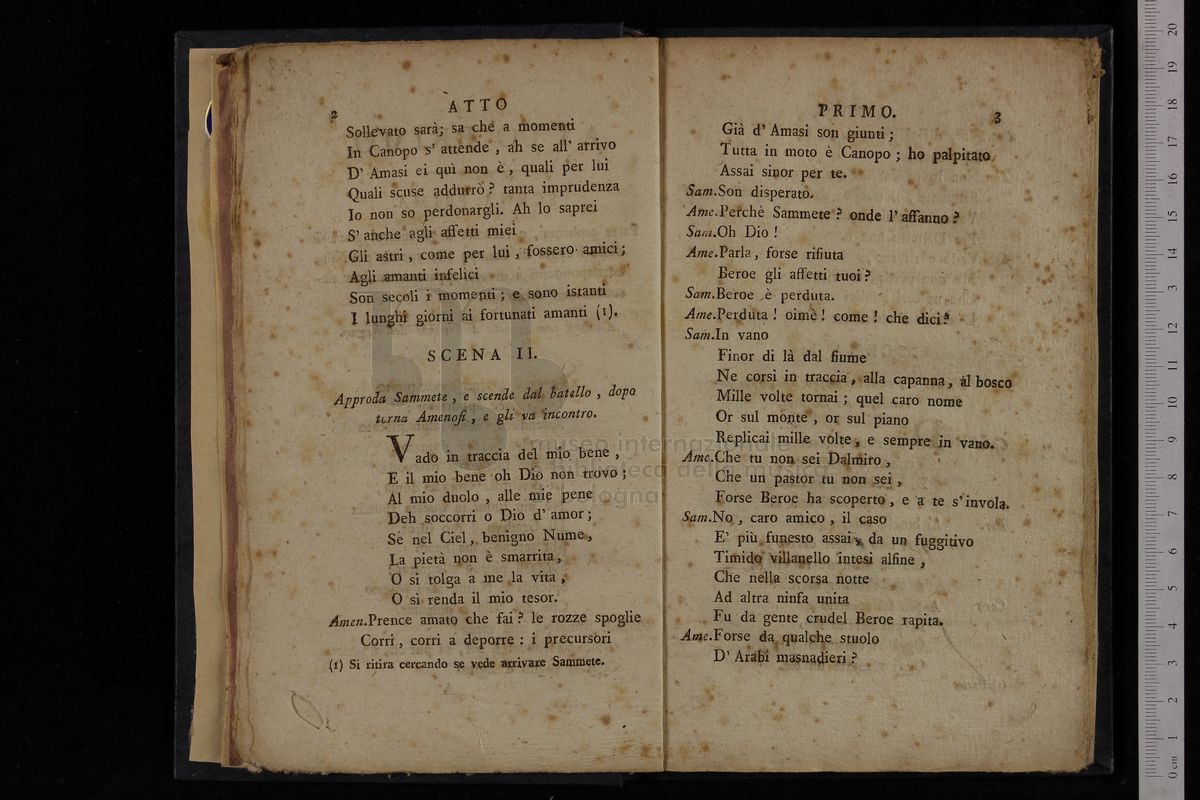 2
ATTO
Sollevato sarà; sa che a momenti
In Canopo s' attende , ah se all' arrivo
D' Amasi ei quì non è , quali per lui
Quali scuse addurrò ? tanta imprudenza
Io non so perdonargli. Ah lo saprei
S' anche agli affetti miei
Gli astri , come per lui , fossero amici ;
Agli amanti infelici
Son secoli i momenti ; e sono istanti
I lunghi giorni ai fortunati amanti (1).
SCENA II.
Approda Sammete , e scende dal batello , dopo
torna Amenofi , e gli va incontro.
Vado in traccia del mio bene ,
E il mio bene oh Dio non trovo ;
Al mio duolo , alle mie pene
Deh soccorri o Dio d' amor ;
Se nel Ciel , benigno Nume ,
La pietà non è smarrita ,
O si tolga a me la vita ,
O si renda il mio tesor.
Amen.Prence amato che fai ? le rozze spoglie
Corri , corri a deporre : i precursori
(1) Si ritira cercando se vede arrivare Sammete.
PRIMO.
3
Già d' Amasi son giunti ;
Tutta in moto è Canopo ; ho palpitato
Assai sinor per te.
Sam.Son disperato.
Ame.Perchè Sammete ? onde l' affanno ?
Sam.Oh Dio !
Ame.Parla , forse rifiuta
Beroe gli affetti tuoi ?
Sam.Beroe è perduta.
Ame.Perduta ! oimè ! come ! che dici ?
Sam.In vano
Finor di là dal fiume
Ne corsi in traccia , alla capanna , al bosco
Mille volte tornai ; quel caro nome
Or sul monte , or sul piano
Replicai mille volte , e sempre in vano.
Ame.Che tu non sei Dalmiro ,
Che un pastor tu non sei ,
Forse Beroe ha scoperto , e a te s' invola.
Sam.No , caro amico , il caso
E' più funesto assai , da un fuggitivo
Timido villanello intesi alfine ,
Che nella scorsa notte
Ad altra ninfa unita
Fu da gente crudel Beroe rapita.
Ame.Forse da qualche stuolo
D' Arabi masnadieri ?
museo internazionale
e biblioteca della musica
di bologna
0 cm 1 2 3 4 5 6 7 8 9 10 11 12 13 14 15 16 17 18 19 20